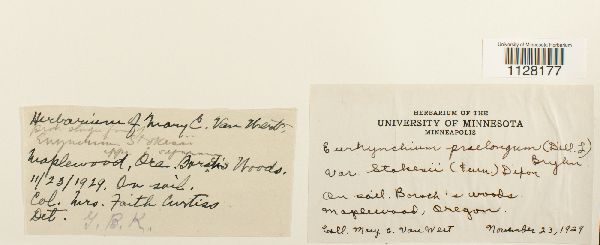 University of Minnesota Herbarium
1128177
Herbarium of Mary E. Van Wert
Eurynchium Stokesii
Maplewood, Ore. Borsch's Woods.
11/23/1929. On soil.
Col. Mrs. Faith Curtiss
Det. G. B. K.
HERBARIUM OF THE
UNIVERSITY OF MINNESOTA
MINNEAPOLIS
Eurhynchium praelongum (Dill. L)
Bryhn
var. Stokesii (Turn) Dixon
On soil. Borsch's woods
Maplewood, Oregon.
Coll. Mary E. Van Wert November 23, 1929